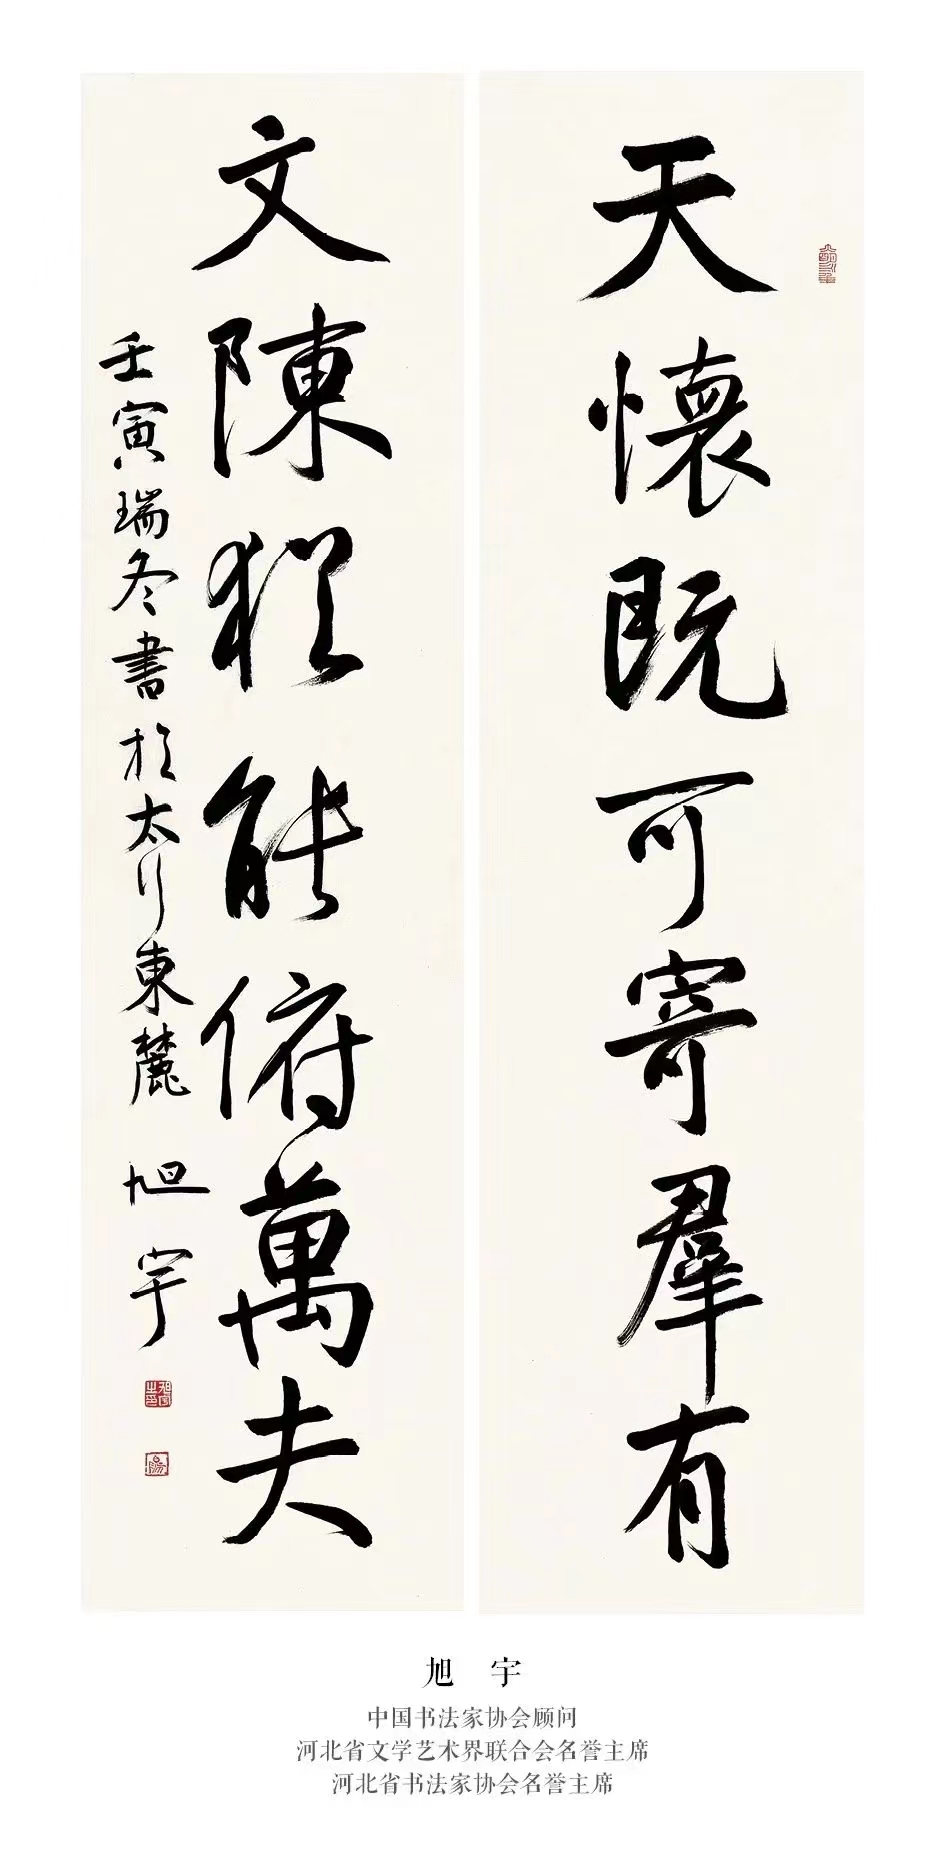 天懷既可寄羣有
文陳猶能俯萬夫
壬寅瑞冬書於太行東麓 旭宇
旭宇
中国书法家协会顾问
河北省文学艺术界联合会名誉主席
河北省书法家协会名誉主席